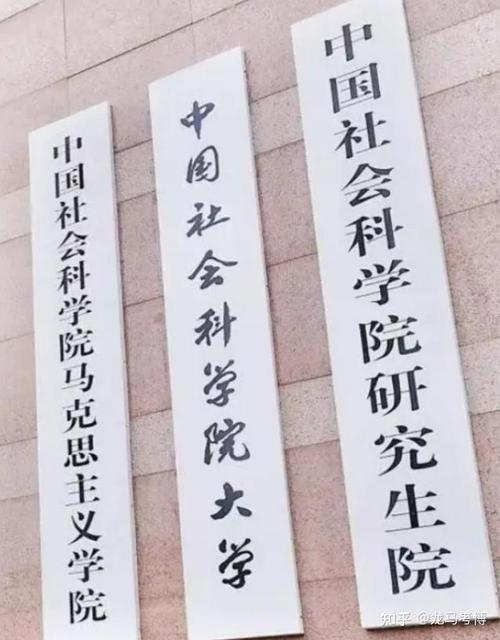 中国社会科学院马克思主义学院
中国社会科学院大学
中国社会科学院研究生院
知乎 @龙马考博